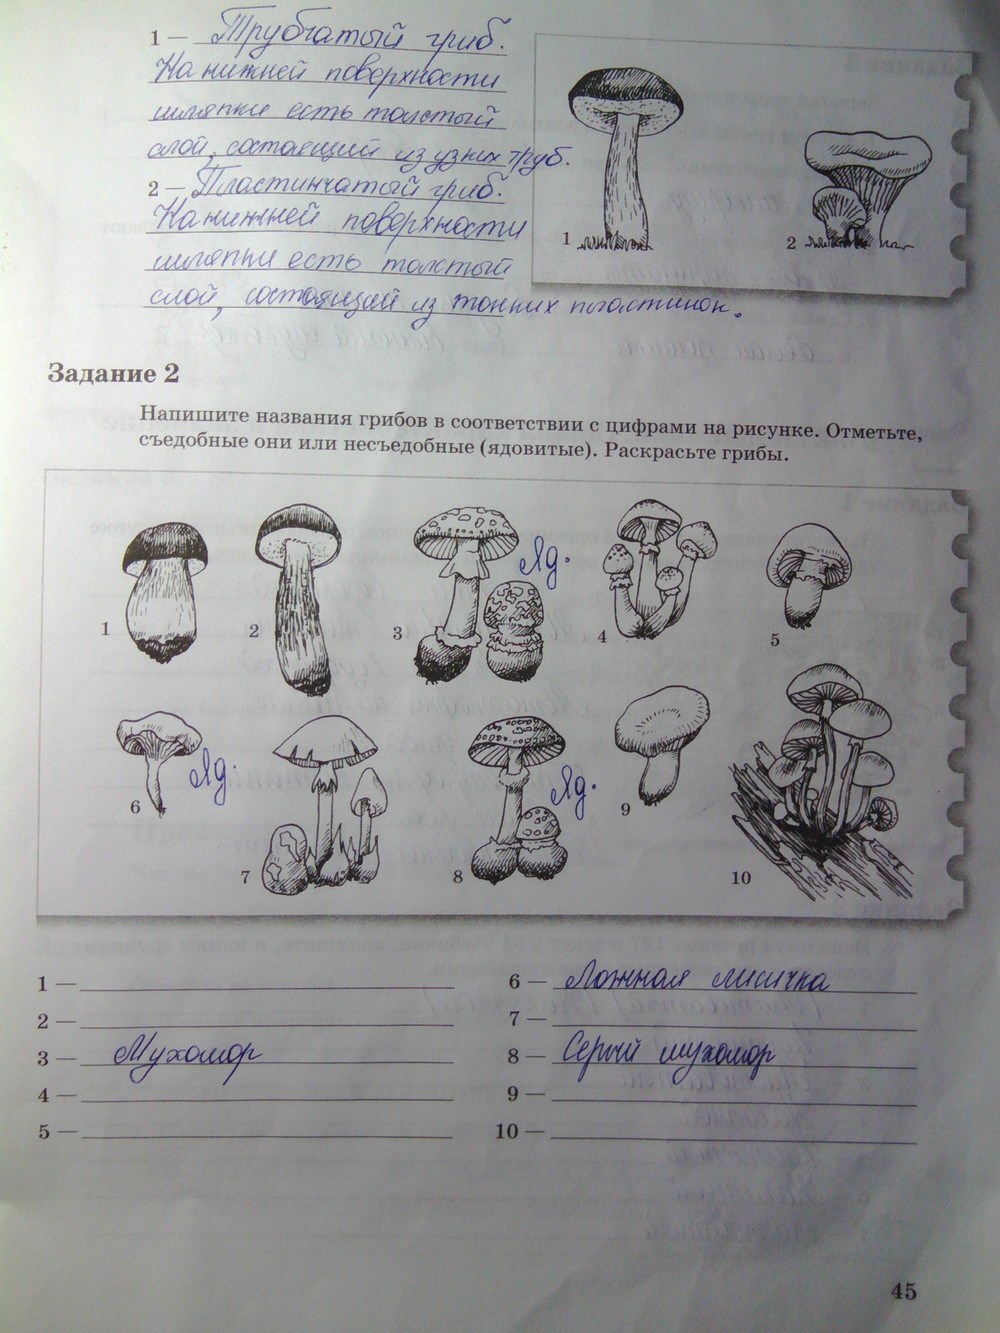 1 — Трубчатый гриб.
На нижней поверхности
шляпки есть толстый
слой, состоящий из узких труб.
2 — Пластинчатый гриб.
На нижней поверхности
шляпки есть толстый
слой, состоящий из тонких пластинок.
1
2
Задание 2
Напишите названия грибов в соответствии с цифрами на рисунке. Отметьте,
съедобные они или несъедобные (ядовитые). Раскрасьте грибы.
1
2
3
Яд.
4
5
6
Яд.
7
8
Яд.
9
10
1 —
2 —
3 — Мухомор
4 —
5 —
6 — Ложная лисичка
7 —
8 — Серый мухомор
9 —
10 —
45